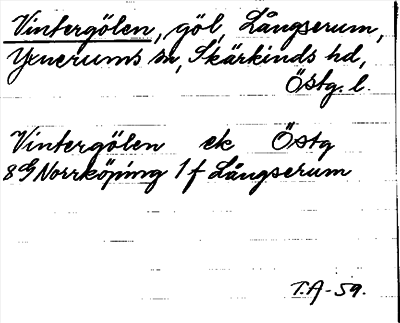 Vintergölen, göl, Långserum,
Yxnerums sn, Skärkinds hd,
Östg. l.
Vintergölen ek Östg
8G Norrköping 1f Långserum
T.A-59.